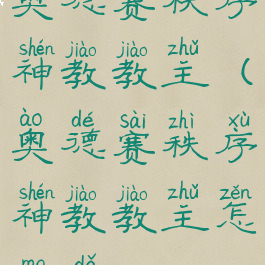 奥德赛秩序
shén jiào jiào zhǔ
神教教主（
ào dé sài zhì xù
奥德赛秩序
shén jiào jiào zhǔ zěn
神教教主怎